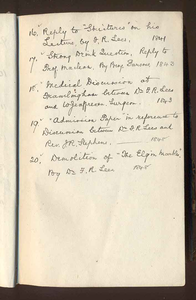 16. "Reply to "Strictures" on his
Lecture, by F. R. Lees. 1841
17. "Strong Drink Question, Reply to
Prof Maclean. By Benj Parsons 1842
18. "Medical Discussion at
between Dr F R Lees
and W Jeaffreson Surgeon. 1843
19. "Admission Paper" in reference to
Discussion between Dr F R Lees and
Rev. J R Stephens.
20. Demolition of "The Elgin Marble"
By Dr F. R. Lees